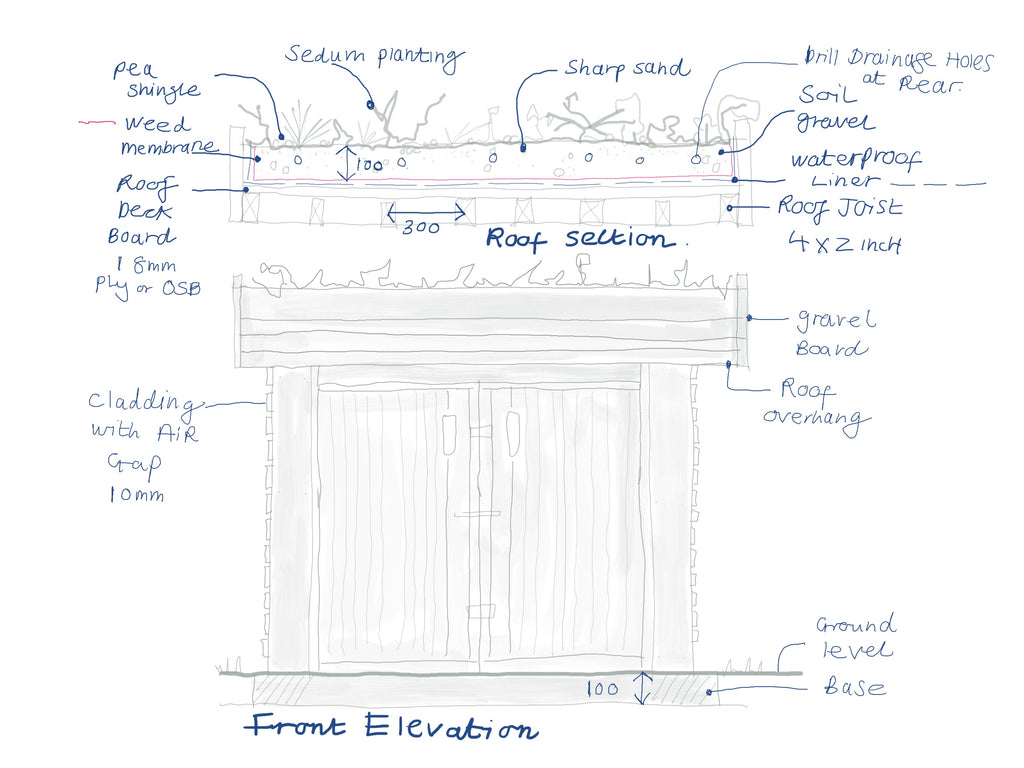 Pea
shingle
Sedum planting
Sharp sand
Drill Drainage Holes
at Rear.
Soil
gravel
Weed
membrane
100
waterproof
Liner
Roof
Deck
Board
18mm
Ply or OSB
Roof Joist
4 x 2 inch
300
Roof Section.
gravel
Board
Roof
overhang
Cladding
with AiR
Gap
10mm
Ground
level
100
Base
Front Elevation